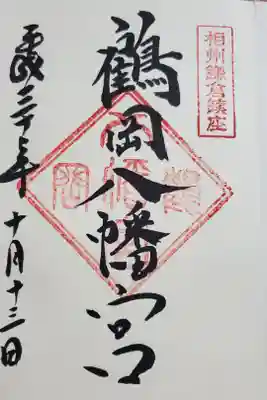 相州鎌倉鎮座
鶴岡八幡宮
平成三十年十月十三日